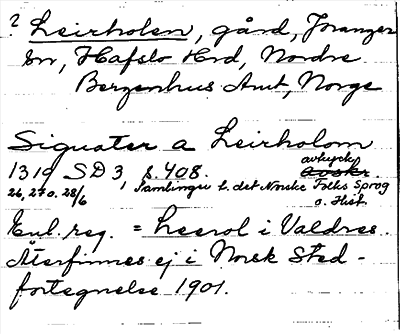 ? Leirholen, gård, Joranger
sn, Hafslo Hrd, Nordre
Bergenhus Amt, Norge
Signater a Leirholom
1319 SD 3, s. 408. avtryck
26, 27 o. 28/6 Samlinger t. det Norske Folks Sprog
o. Hist.
Enl. reg. = Leerol i Valdres.
Återfinnes ej i Norsk Sted-
fortegnelse 1901.